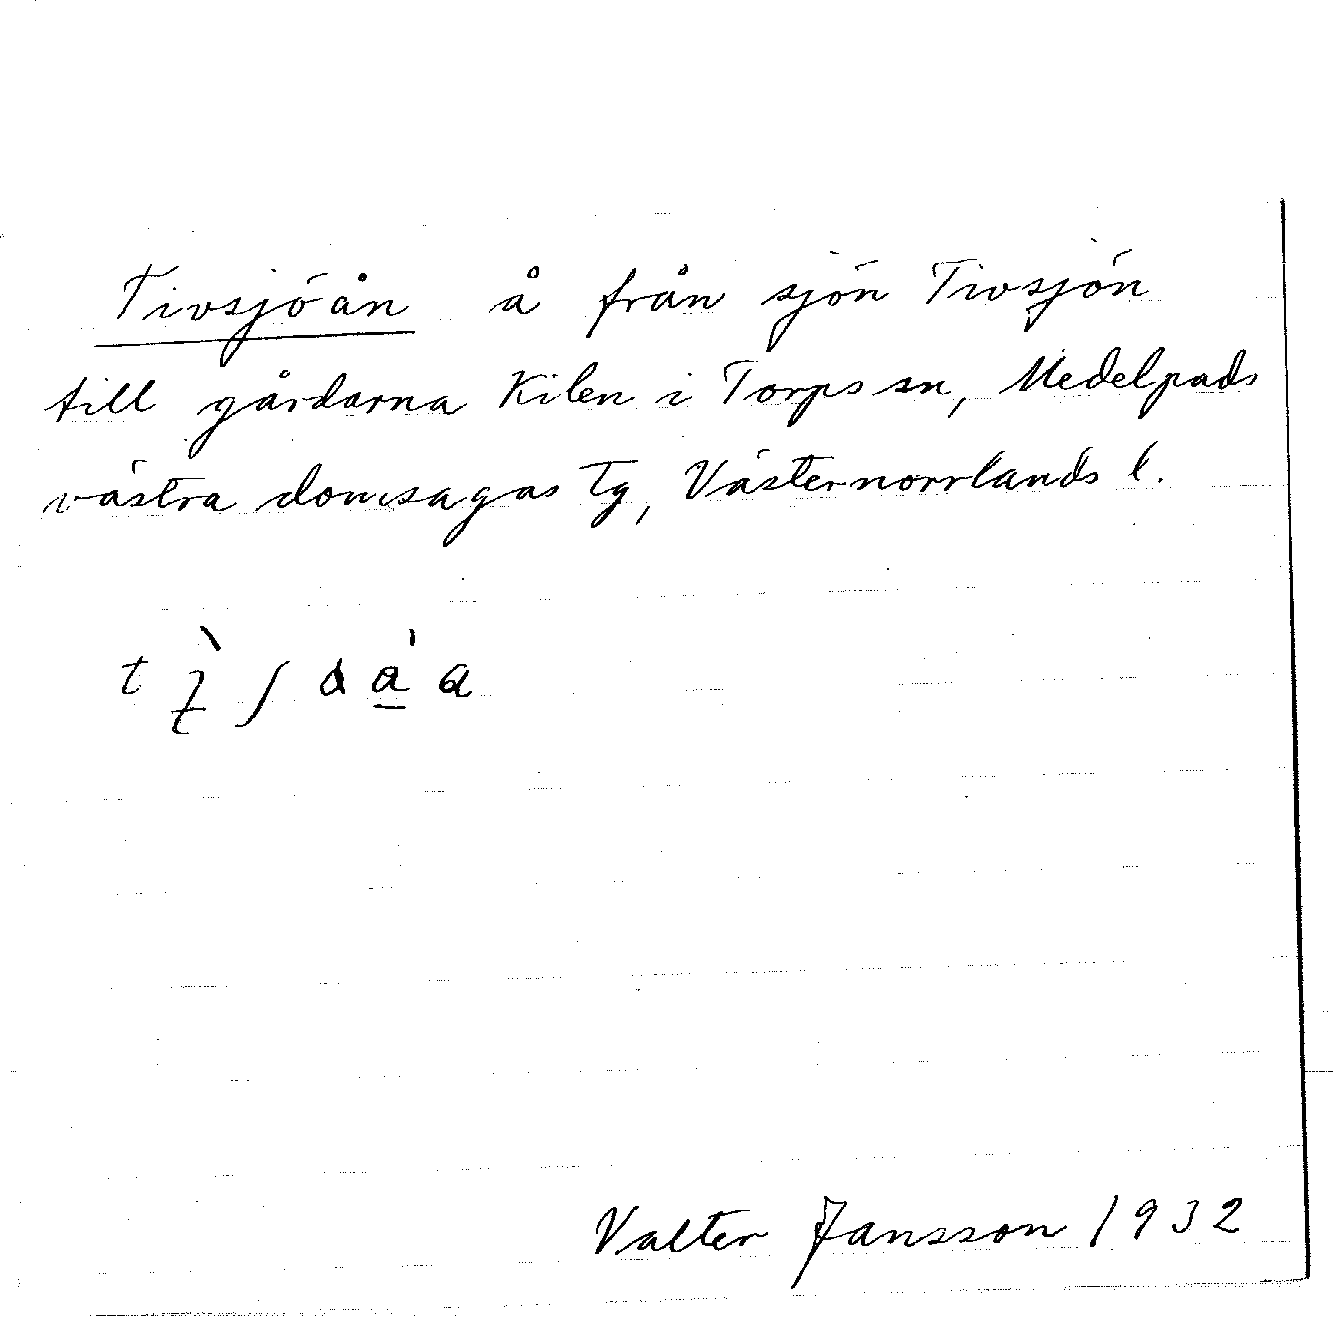 Tivsjöån å från sjön Tivsjön
till gårdarna Kilen i Torps sn, Medelpads
västra domsagas tg, Västernorrlands l.
Valter Jansson 1932